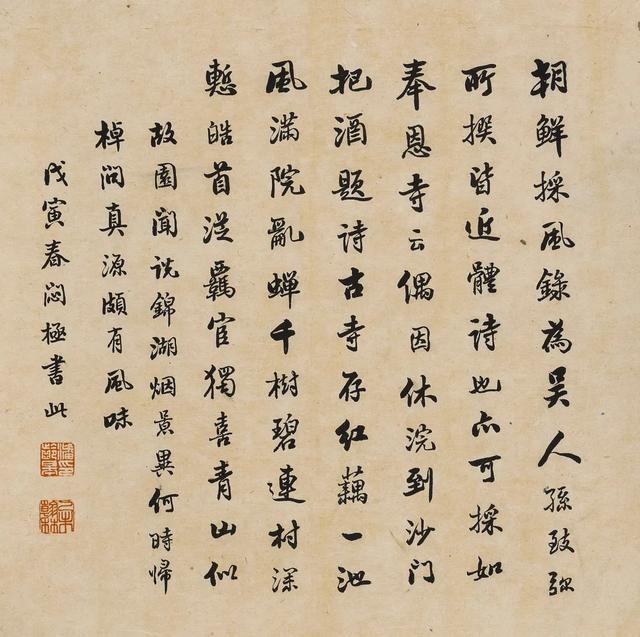 朝鮮採風錄為吳人孫致彌
所撰皆近體詩也亦可採如
奉恩寺云偶因休浣到沙門
把酒題詩古寺存紅藕一池
風滿院亂蟬千樹碧連村深
慙皓首從羈宦獨喜青山似
故園聞說錦湖烟景異何時歸
棹問真源頗有風味
戊寅春悶極書此